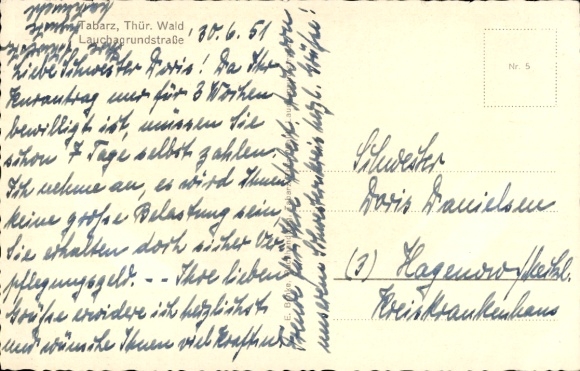 Tabarz, Thür. Wald
Lauchagrundstraße
30.6.51
Liebe Schwester Doris! Da Ihr
Kurantrag nur für 3 Wochen
bewilligt ist, müssen Sie
schon 7 Tage selbst zahlen.
Ich nehme an, es wird Ihnen
keine große Belastung sein.
Sie erhalten doch sicher Ver-
pflegungsgeld. -- Ihre lieben
Grüße erwidere ich herzlichst
und wünsche Ihnen viel Kraft und
Freude für Ihre Arbeit.
unserem Schwesternkreis herzl. Grüße!
Nr. 5
Schwester
Doris Danielsen
(3) Hagenow/Meckl.
Kreiskrankenhaus